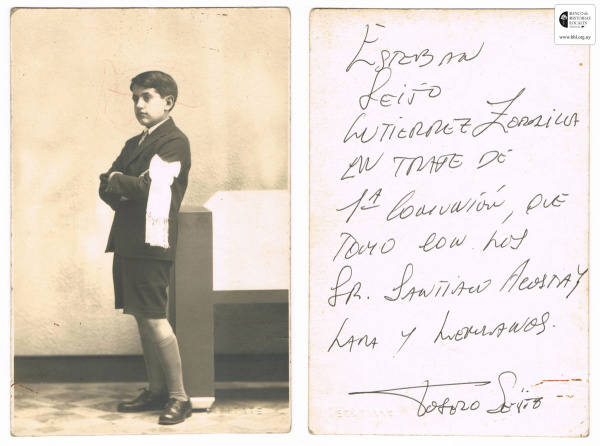 BANCO DE
HISTORIAS
LOCALES
www.bhl.org.uy
ESTEBAN
SEIJO
GUTIERREZ ZORRILLA
EN TRAJE DE
1A COMUNIÓN, QUE
TOMO CON LOS
SR. SANTIAGO ACOSTA Y
LARA Y HERMANOS.
SEIJO